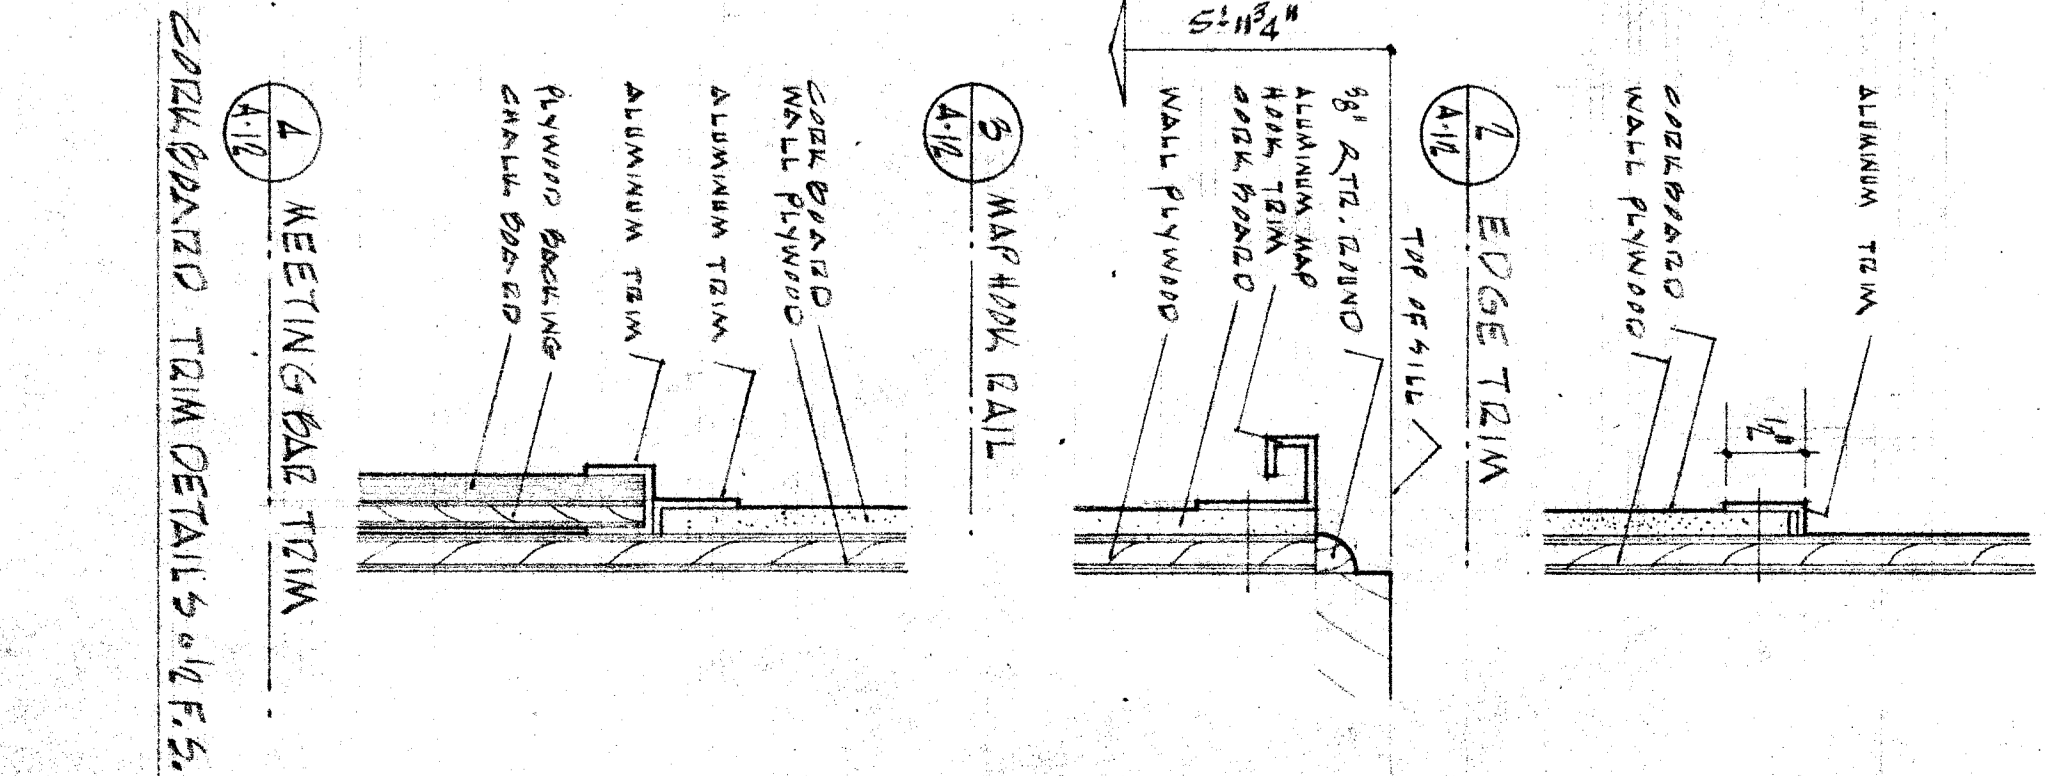 ALUMINUM TRIM
CORKBOARD
WALL PLYWOOD
1/2"
2
A-12
EDGE TRIM
TOP OF SILL
5'-11 3/4"
3/8" QTR. ROUND
ALUMINUM MAP
HOOK TRIM
CORKBOARD
WALL PLYWOOD
3
A-12
MAP HOOK RAIL
CORKBOARD
WALL PLYWOOD
ALUMINUM TRIM
ALUMINUM TRIM
PLYWOOD BACKING
CHALK BOARD
A-12
MEETING BAR TRIM
CORKBOARD TRIM DETAILS 1/2 F.S.